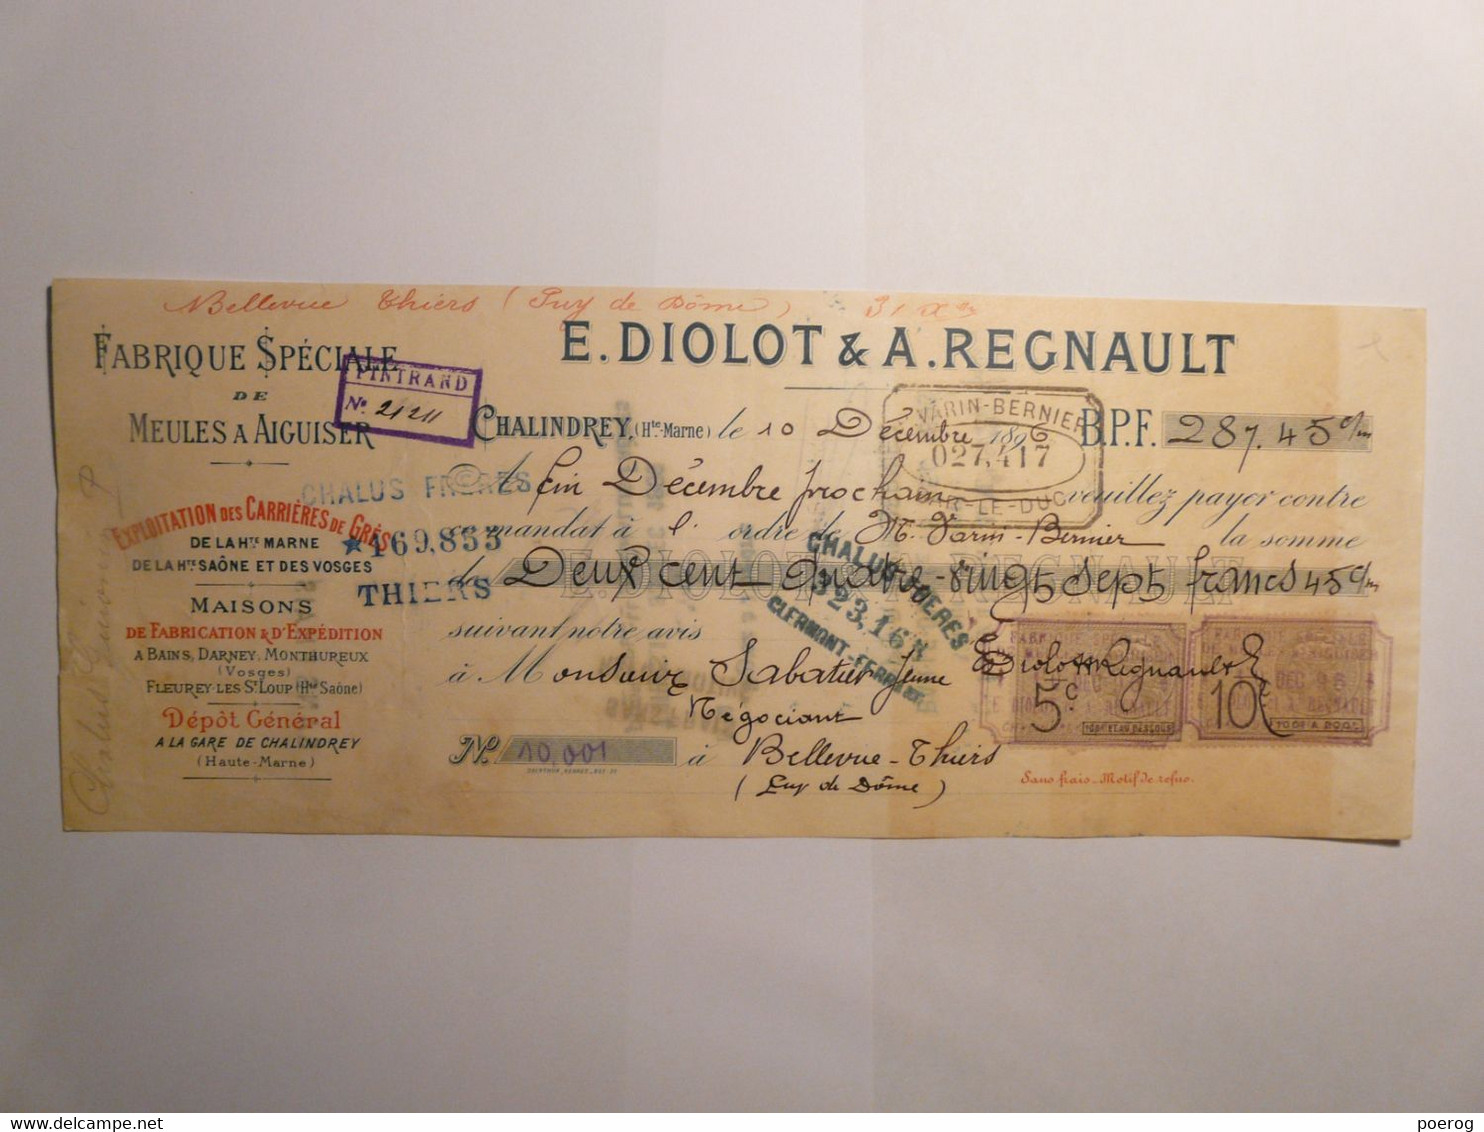 Bellevue Thiers (Puy de Dôme) 31 Xbre
E. DIOLOT & A. REGNAULT
FABRIQUE SPÉCIALE
DE
MEULES A AIGUISER
PINTRAND
No. 21211
EXPLOITATION DES CARRIÈRES DE GRÈS
DE LA Hte MARNE
DE LA Hte SAÔNE ET DES VOSGES
MAISONS
DE FABRICATION & D'EXPÉDITION
A BAINS, DARNEY, MONTHUREUX
(Vosges)
FLEUREY-LES St LOUP (Hte Saône)
Dépôt Général
A LA GARE DE CHALINDREY
(Haute-Marne)
CHALUS FRÈRES
★169,855
THIERS
CHALINDREY, (Hte-Marne) le 10 Décembre 1896 B.P.F. 287.45 c/m
VARIN-BERNIER
027,417
BAR-LE-DUC
A fin Décembre prochain veuillez payer contre
ce mandat à l' ordre de M. Varin-Bernier la somme
de Deux cent quatre-vingt sept francs 45 c/m
E. DIOLOT & A. REGNAULT
suivant notre avis
à Monsieur Sabatier Jeune
Négociant
No. 10,001 à Bellevue-Thiers
(Puy de Dôme)
CHALUS FRÈRES
323,168
CLERMONT-FERRAND
E Diolot & A Regnault
5c
10c
Sans frais.-Motif de refus.
poerog